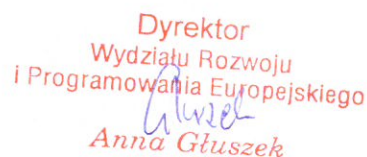 Dyrektor
Wydziału Rozwoju
i Programowania Europejskiego
Głuszek
Anna Głuszek